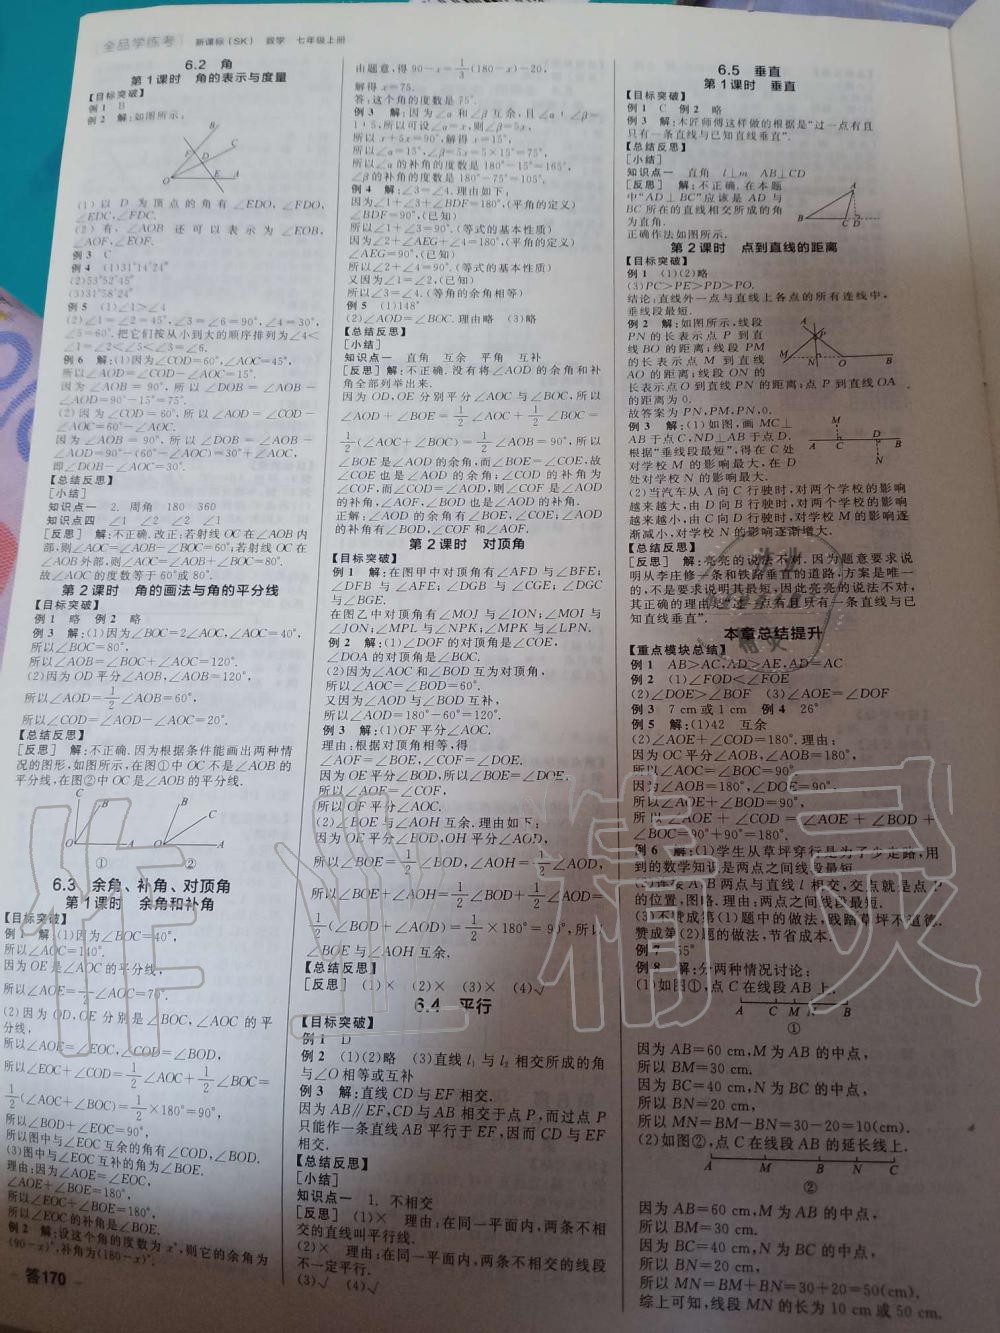 全品学练考 新课标(SK) 数学 七年级上册
6.2 角
第1课时 角的表示与度量
【目标突破】
例1 B
例2 解:如图所示:
B
F
D
C
O
E
A
(1)以D为顶点的角有∠EDO,∠FDO,
∠EDC,∠FDC.
(2)有,∠AOB还可以表示为∠EOB,
∠AOF,∠EOF.
例3 C
例4 (1)31°14′24″
(2)53°52′45″
(3)31°58′24″
例5 (1)∠1>∠4
(2)∠1=∠2=45°,∠3=∠6=90°,∠4=30°,
∠5=60°.把它们按从小到大的顺序排列为∠4<
∠1=∠2<∠5<∠3=∠6.
例6 解:(1)因为∠COD=60°,∠AOC=45°,
所以∠AOD=∠COD-∠AOC=15°.
因为∠AOB=90°,所以∠DOB=∠AOB-
∠AOD=90°-15°=75°.
(2)因为∠COD=60°,所以∠AOD=∠COD-
∠AOC=60°-∠AOC.
因为∠AOB=90°,所以∠DOB=∠AOB-
∠AOD=90°-(60°-∠AOC)=30°+∠AOC,
即∠DOB-∠AOC=30°.
【总结反思】
[小结]
知识点一 2. 周角 180 360
知识点四 ∠1 ∠2 ∠2 ∠1
[反思] 解:不正确.改正:若射线OC在∠AOB内
部,则∠AOC=∠AOB-∠BOC=60°;若射线OC在
∠AOB外部,则∠AOC=∠AOB+∠BOC=80°.
故∠AOC的度数等于60°或80°.
第2课时 角的画法与角的平分线
【目标突破】
例1 略 例2 略
例3 解:(1)因为∠BOC=2∠AOC,∠AOC=40°,
所以∠BOC=80°,
所以∠AOB=∠BOC+∠AOC=120°.
(2)因为OD平分∠AOB,∠AOB=120°,
所以∠AOD=1/2∠AOB=60°,
所以∠COD=∠AOD-∠AOC=20°.
【总结反思】
[反思] 解:不正确.因为根据条件能画出两种情
况的图形,如图所示,在图①中OC不是∠AOB的
平分线,在图②中OC是∠AOB的平分线.
C
B
O
A
①
B
C
O
A
②
6.3 余角、补角、对顶角
第1课时 余角和补角
【目标突破】
例1 解:(1)因为∠BOC=40°,
所以∠AOC=140°.
因为OE是∠AOC的平分线,
所以∠AOE=1/2∠AOC=70°.
(2)因为OD,OE分别是∠BOC,∠AOC的平
分线,
所以∠AOE=∠EOC,∠COD=∠BOD,
所以∠EOC+∠COD=1/2∠AOC+1/2∠BOC=
1/2(∠AOC+∠BOC)=1/2×180°=90°,
所以∠BOD+∠EOC=90°,
所以图中与∠EOC互余的角有∠COD,∠BOD.
(3)图中与∠EOC互补的角为∠BOE.
理由:因为∠AOE=∠EOC,
∠AOE+∠BOE=180°,
所以∠EOC+∠BOE=180°,
所以∠EOC的补角是∠BOE.
例2 解:设这个角的度数为x°,则它的余角为
(90-x)°,补角为(180-x)°.
答170
由题意,得90-x=1/3(180-x)-20,
解得x=75.
答:这个角的度数是75°.
例3 解:因为∠α和∠β互余,且∠α∶∠β=
1∶5,所以可设∠α=x,则∠β=5x,
所以x+5x=90°,解得x=15°,
所以∠α=15°,∠β=5x=5×15°=75°,
所以∠α的补角的度数是180°-15°=165°,
∠β的补角的度数是180°-75°=105°.
例4 解:∠3=∠4.理由如下:
因为∠1+∠3+∠BDF=180°,(平角的定义)
∠BDF=90°,(已知)
所以∠1+∠3=90°.(等式的基本性质)
因为∠2+∠AEG+∠4=180°,(平角的定义)
∠AEG=90°,(已知)
所以∠2+∠4=90°.(等式的基本性质)
又因为∠1=∠2,(已知)
所以∠3=∠4.(等角的余角相等)
例5 (1)148°
(2)∠AOD=∠BOC.理由略 (3)略
【总结反思】
[小结]
知识点一 直角 互余 平角 互补
[反思] 解:不正确.没有将∠AOD的余角和补
角全部列举出来.
因为OD,OE分别平分∠AOC与∠BOC,所以
∠AOD+∠BOE=1/2∠AOC+1/2∠BOC=
1/2(∠AOC+∠BOC)=1/2∠AOB=90°,所以
∠BOE是∠AOD的余角,而∠BOE=∠COE,故
∠COE也是∠AOD的余角;∠COD的补角为
∠COF,而∠COD=∠AOD,则∠COF是∠AOD
的补角,∠AOF,∠BOD也是∠AOD的补角.
正解:∠AOD的余角有∠BOE,∠COE;∠AOD
的补角有∠BOD,∠COF和∠AOF.
第2课时 对顶角
【目标突破】
例1 解:在图甲中对顶角有∠AFD与∠BFE;
∠DFB与∠AFE;∠DGB与∠CGE;∠DGC
与∠BGE.
在图乙中对顶角有∠MOJ与∠ION;∠MOI与
∠JON;∠MPL与∠NPK;∠MPK与∠LPN.
例2 解:(1)∠DOF的对顶角是∠COE,
∠DOA的对顶角是∠BOC.
(2)因为∠AOC和∠BOD互为对顶角,
所以∠AOC=∠BOD=60°.
又因为∠AOD与∠BOD互补,
所以∠AOD=180°-60°=120°.
例3 解:(1)OF平分∠AOC.
理由:根据对顶角相等,得
∠AOF=∠BOE,∠COF=∠DOE.
因为OE平分∠BOD,所以∠BOE=∠DOE,
所以∠AOE=∠COF,
所以OF平分∠AOC.
(2)∠BOE与∠AOH互余.理由如下:
因为OE平分∠BOD,OH平分∠AOD,
所以∠BOE=1/2∠BOD,∠AOH=1/2∠AOD,
所以∠BOE+∠AOH=1/2∠BOD+1/2∠AOD=
1/2(∠BOD+∠AOD)=1/2×180°=90°,所以
∠BOE与∠AOH互余.
【总结反思】
[反思] (1)× (2)× (3)× (4)√
6.4 平行
【目标突破】
例1 D
例2 (1)(2)略 (3)直线l₁与l₂相交所成的角
与∠O相等或互补
例3 解:直线CD与EF相交.
因为AB∥EF,CD与AB相交于点P,而过点P
只能作一条直线AB平行于EF,因而CD与EF
相交.
【总结反思】
[小结]
知识点一 1. 不相交
[反思] (1)× 理由:在同一平面内,两条不相
交的直线叫平行线.
(2)× 理由:在同一平面内,两条不相交的线段
不一定平行.
(3)√ (4)√
6.5 垂直
第1课时 垂直
【目标突破】
例1 C 例2 略
例3 解:木匠师傅这样做的根据是“过一点有且
只有一条直线与已知直线垂直”.
【总结反思】
[小结]
知识点一 直角 l⊥m AB⊥CD
[反思] 解:不正确.在本题
中“AD⊥BC”应该是AD与
BC所在的直线相交所成的角
为直角.
正确作法如图所示.
A
B
C D
第2课时 点到直线的距离
【目标突破】
例1 (1)(2)略
(3)PC>PE>PD>PO.
结论:直线外一点与直线上各点的所有连线中,
垂线段最短.
例2 解:如图所示,线段
PN的长表示点P到直
线BO的距离;线段PM
的长表示点M到直线
AO的距离;线段ON的
长表示点O到直线PN的距离;点P到直线OA
的距离为0.
故答案为PN,PM,PN,0.
A
P
M
N
O
B
例3 解:(1)如图,画MC⊥
AB于点C,ND⊥AB于点D.
根据“垂线段最短”,得在C处
对学校M的影响最大,在D
处对学校N的影响最大.
M
A
C
D
B
N
(2)当汽车从A向C行驶时,对两个学校的影响
越来越大,由D向B行驶时,对两个学校的影响
越来越小,由C向D行驶时,对学校M的影响逐
渐减小,对学校N的影响逐渐增大.
【总结反思】
[反思] 解:亮亮的说法不对.因为题意要求说
明从李庄修一条和铁路垂直的道路,方案是唯一
的,不是要求说明其最短,因此亮亮的说法不对,
其正确的理由是“过一点有且只有一条直线与已
知直线垂直”.
本章总结提升
【重点模块总结】
例1 AB>AC,AD>AE,AD=AC
例2 (1)∠FOD<∠FOE
(2)∠DOE>∠BOF (3)∠AOE=∠DOF
例3 7 cm或1 cm 例4 26°
例5 解:(1)42 互余
(2)∠AOE+∠COD=180°.理由:
因为OC平分∠AOB,∠AOB=180°,
所以∠AOC=∠BOC=90°.
因为∠AOB=180°,∠DOE=90°,
所以∠AOE+∠BOD=90°,
所以∠AOE+∠COD=∠AOE+∠BOD+
∠BOC=90°+90°=180°.
例6 解:(1)学生从草坪穿行是为了少走路,用
到的数学知识是两点之间线段最短.
(2)连接AB两点与直线l相交,交点就是点P
的位置,图略.理由:两点之间线段最短.
(3)不赞成第(1)题中的做法,践踏草坪不道德.
赞成第(2)题的做法,节省成本.
例7 55°
例8 解:分两种情况讨论:
(1)如图①,点C在线段AB上.
A
C M N B
①
因为AB=60 cm,M为AB的中点,
所以BM=30 cm.
因为BC=40 cm,N为BC的中点,
所以BN=20 cm,
所以MN=BM-BN=30-20=10(cm).
(2)如图②,点C在线段AB的延长线上.
A M B N C
②
因为AB=60 cm,M为AB的中点,
所以BM=30 cm.
因为BC=40 cm,N为BC的中点,
所以BN=20 cm,
所以MN=BM+BN=30+20=50(cm).
综上可知,线段MN的长为10 cm或50 cm.
作业精灵